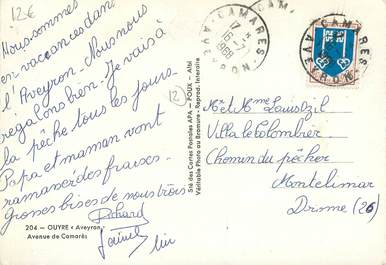 12€
Nous sommes
en vaccances dans
l'Aveyron. Nous nous
régalons bien. Je vais à
la pêche tous les jours.
Papa et maman vont
ramasser des fraises.
Grosses bises de nous trois
Richard
204 - OUYRE « Aveyron »
Avenue de Camarès
12
Sté des Cartes Postales APA - POUX - Albi
Véritable Photo au Bromure - Reprod. Interdite
CAMARES
17 H
16-7
1968
AVEYRON
CAMARES
AVEYRON
Mr et Mme Louis
Villa le Colombier
Chemin du pêcher
Montelimar
Drome (26)